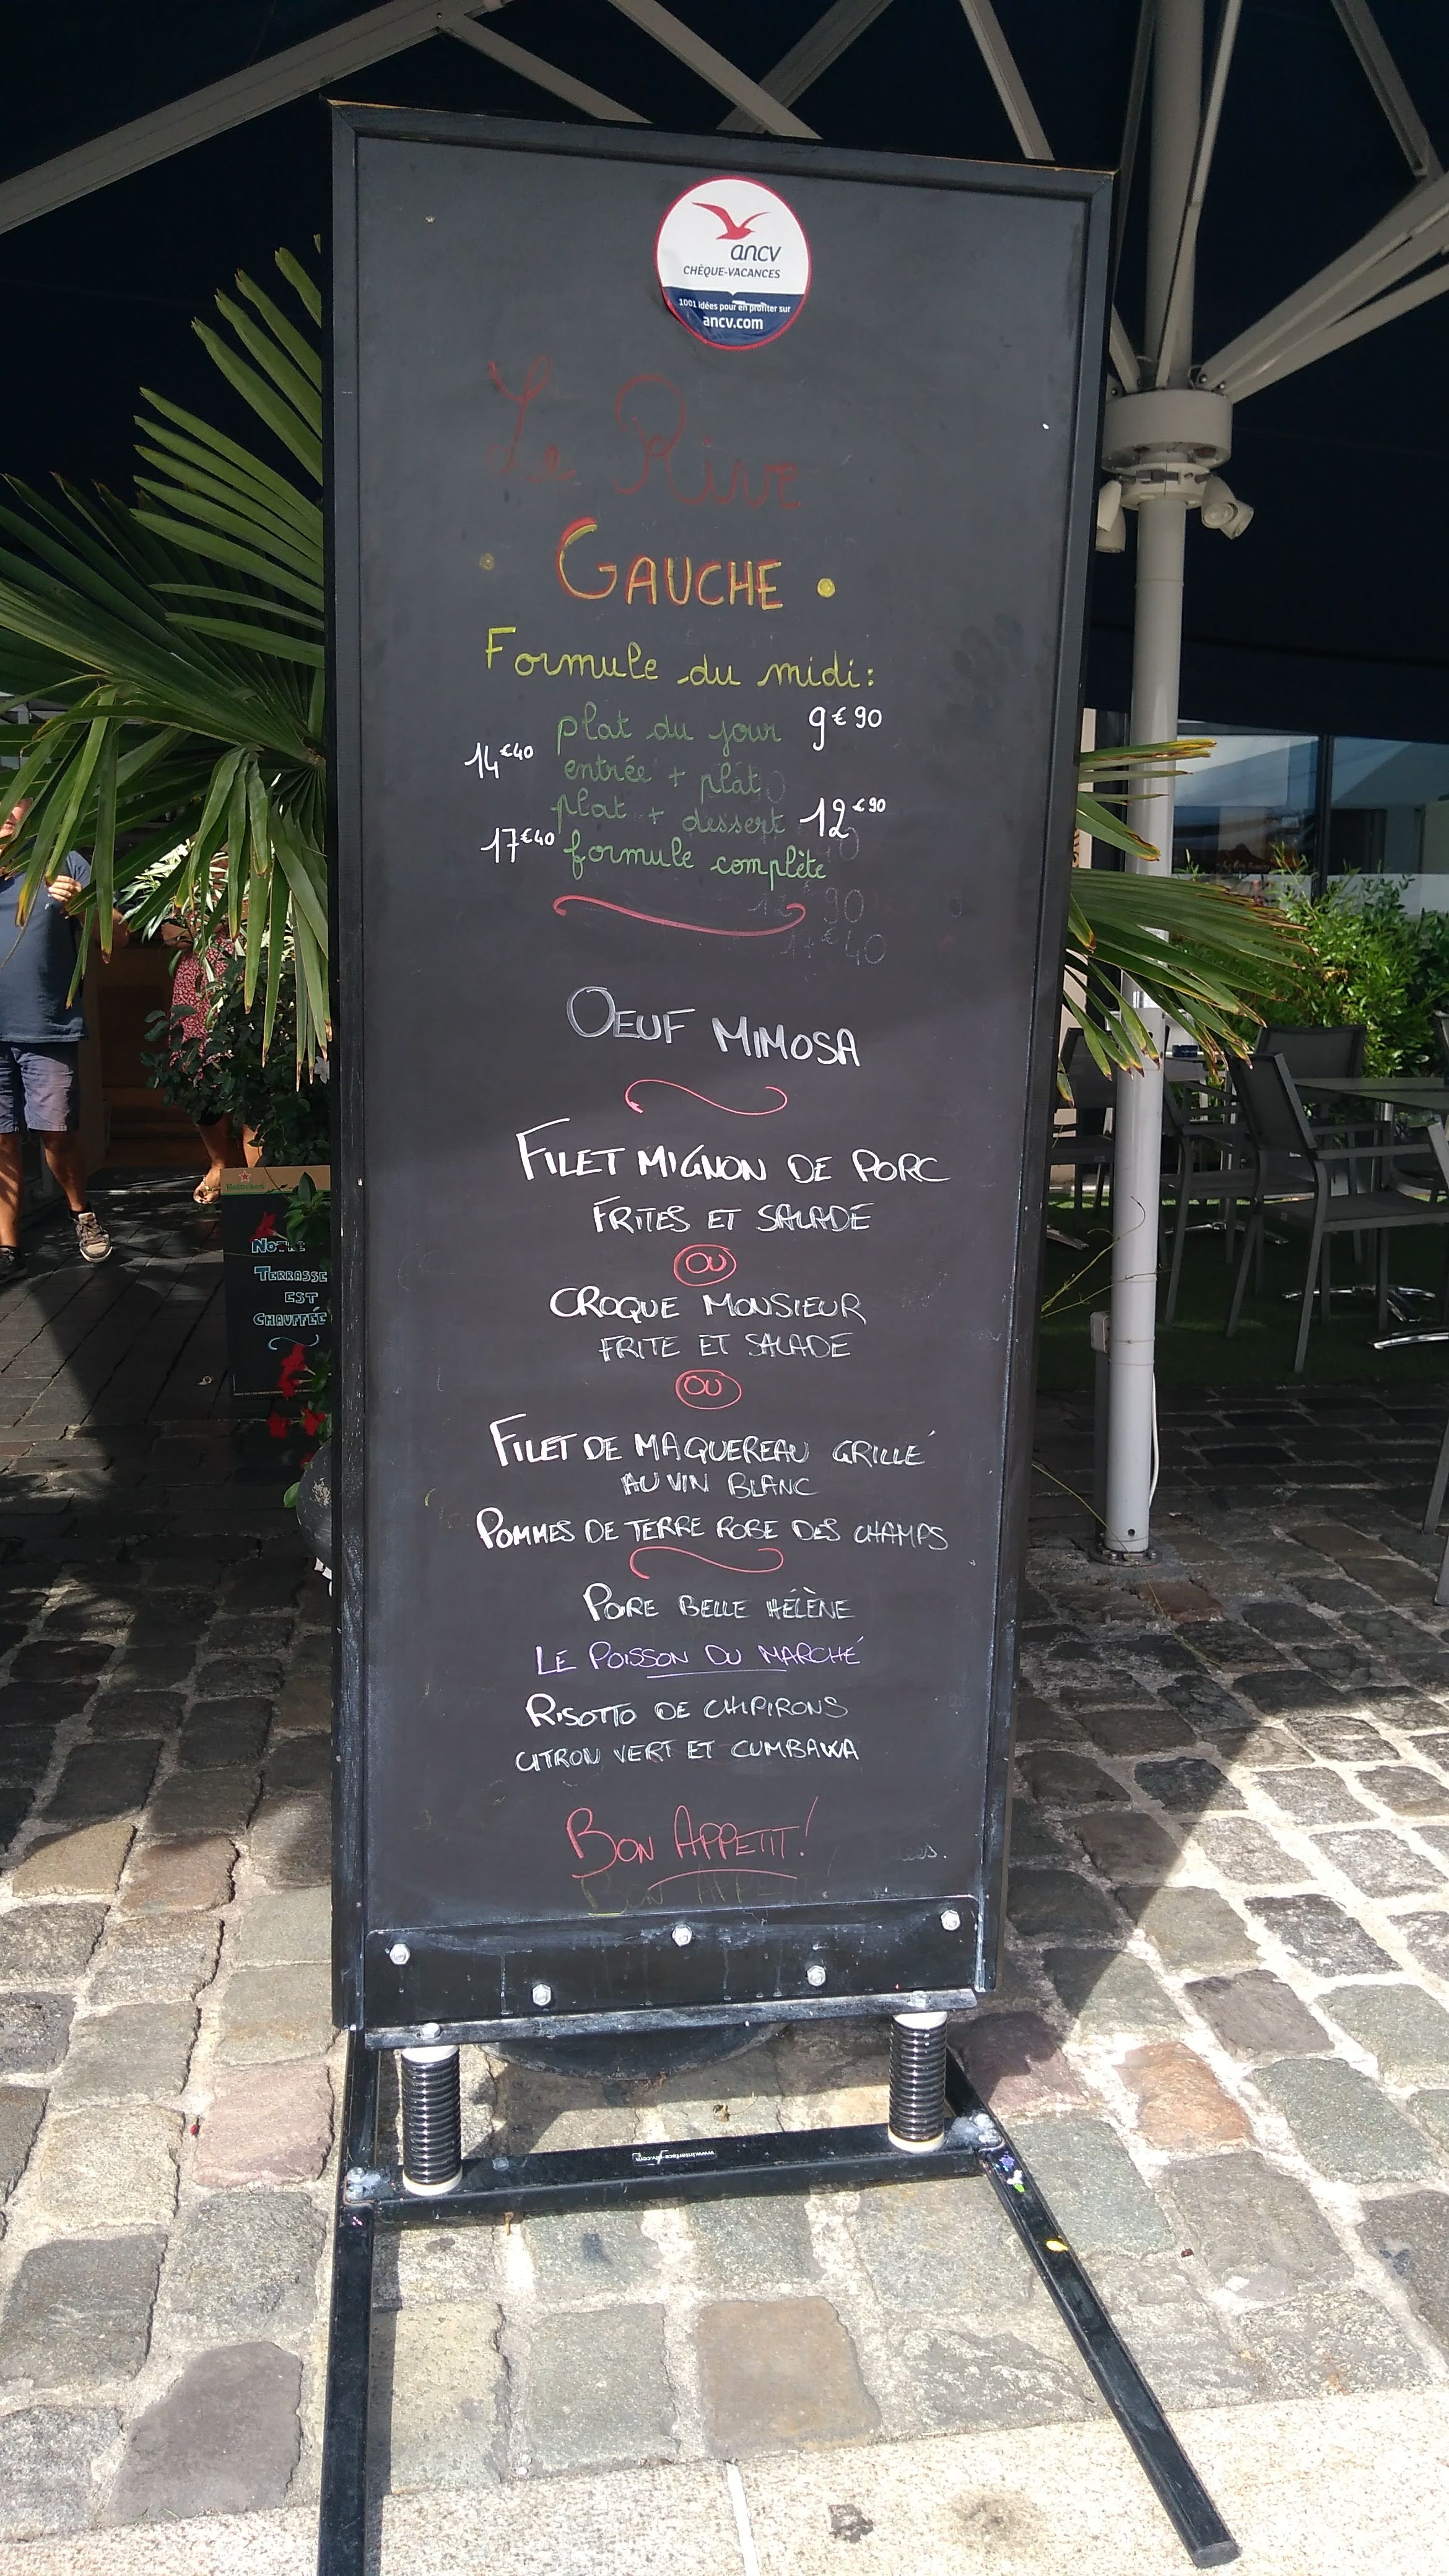 ancv
CHÈQUE-VACANCES
1001 idées pour en profiter sur
ancv.com
Le Rive
GAUCHE
Formule du midi:
plat du jour 9€90
14€40 entrée + plat
plat + dessert 12€90
17€40 formule complète
90
40
OEUF MIMOSA
FILET MIGNON DE PORC
FRITES ET SALADE
OU
CROQUE MONSIEUR
FRITE ET SALADE
OU
FILET DE MAQUEREAU GRILLÉ
AU VIN BLANC
POMMES DE TERRE ROBE DES CHAMPS
POIRE BELLE HÉLÈNE
LE POISSON DU MARCHÉ
RISOTTO DE CHIPIRONS
CITRON VERT ET CUMBAWA
BON APPETIT!
BON APPE
Heineken
NOTRE
TERRASSE
EST
CHAUFFÉE